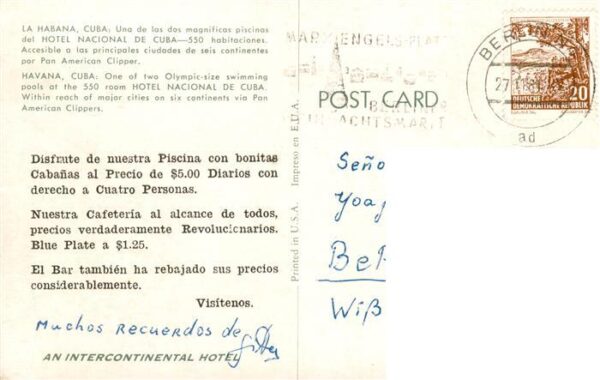 LA HABANA, CUBA: Una de las dos magníficas piscinas
del HOTEL NACIONAL DE CUBA—550 habitaciones.
Accesible a las principales ciudades de seis continentes
por Pan American Clipper.
HAVANA, CUBA: One of two Olympic-size swimming
pools at the 550 room HOTEL NACIONAL DE CUBA.
Within reach of major cities on six continents via Pan
American Clippers.
Disfrute de nuestra Piscina con bonitas
Cabañas al Precio de $5.00 Diarios con
derecho a Cuatro Personas.
Nuestra Cafetería al alcance de todos,
precios verdaderamente Revolucionarios.
Blue Plate a $1.25.
El Bar también ha rebajado sus precios
considerablemente.
Visítenos.
Muchos recuerdos de
AN INTERCONTINENTAL HOTEL
Printed in U.S.A. Impreso en E.U.A.
MARX-ENGELS-PLATZ
BERLINER
WEIHNACHTSMARKT
POST CARD
BERLIN
27
ad
20
DEUTSCHE
DEMOKRATISCHE REPUBLIK
Seño
Yoa
Be
Wiß